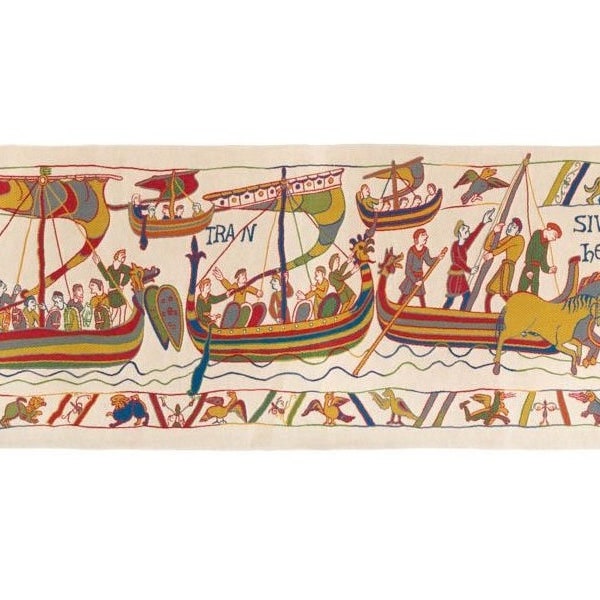 TRAN
SIV
he